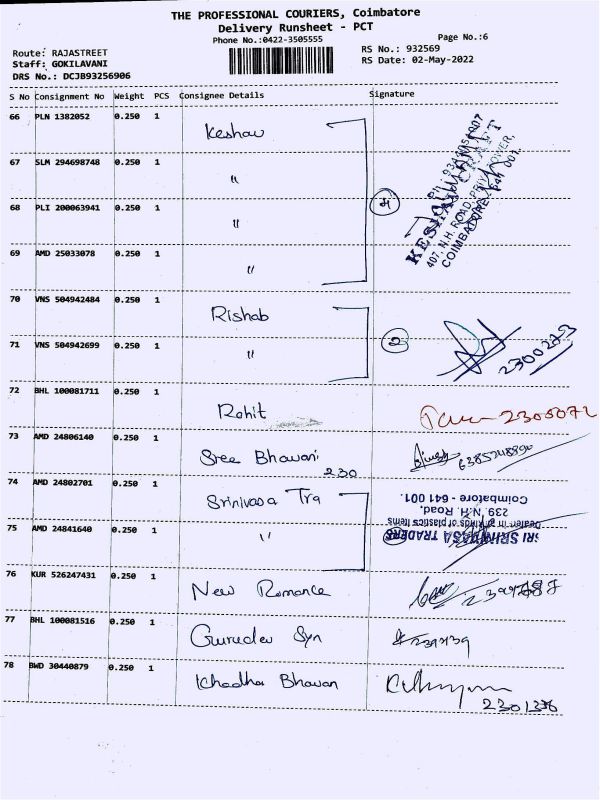 THE PROFESSIONAL COURIERS, Coimbatore
Delivery Runsheet - PCT
Phone No.:0422-3505555
Page No.:6
Route: RAJASTREET
RS No.: 932569
Staff: GOKILAVANI
RS Date: 02-May-2022
DRS No.: DCJB93256906
S No Consignment No Weight PCS Consignee Details Signature
66 PLN 1382052 0.250 1 Keshav
67 SLM 294698748 0.250 1 "
68 PLI 200063941 0.250 1 "
69 AMD 25033078 0.250 1 "
407, N.H. ROAD,
COIMBATORE - 641 001.
70 VNS 504942484 0.250 1 Rishab
71 VNS 504942699 0.250 1 " 2 2300223
72 BHL 100081711 0.250 1 Rohit 2305072
73 AMD 24806140 0.250 1 Sree Bhavani 230
74 AMD 24802701 0.250 1 Srinivasa Tra
75 AMD 24841640 0.250 1 "
SRI SRINIVASA TRADERS
Dealer in all kinds of plastics Items
239, N.H. Road,
Coimbatore - 641 001.
76 KUR 526247431 0.250 1 New Romance
77 BHL 100081516 0.250 1 Gurudev Syn
78 BWD 30440879 0.250 1 Khadha Bhavan